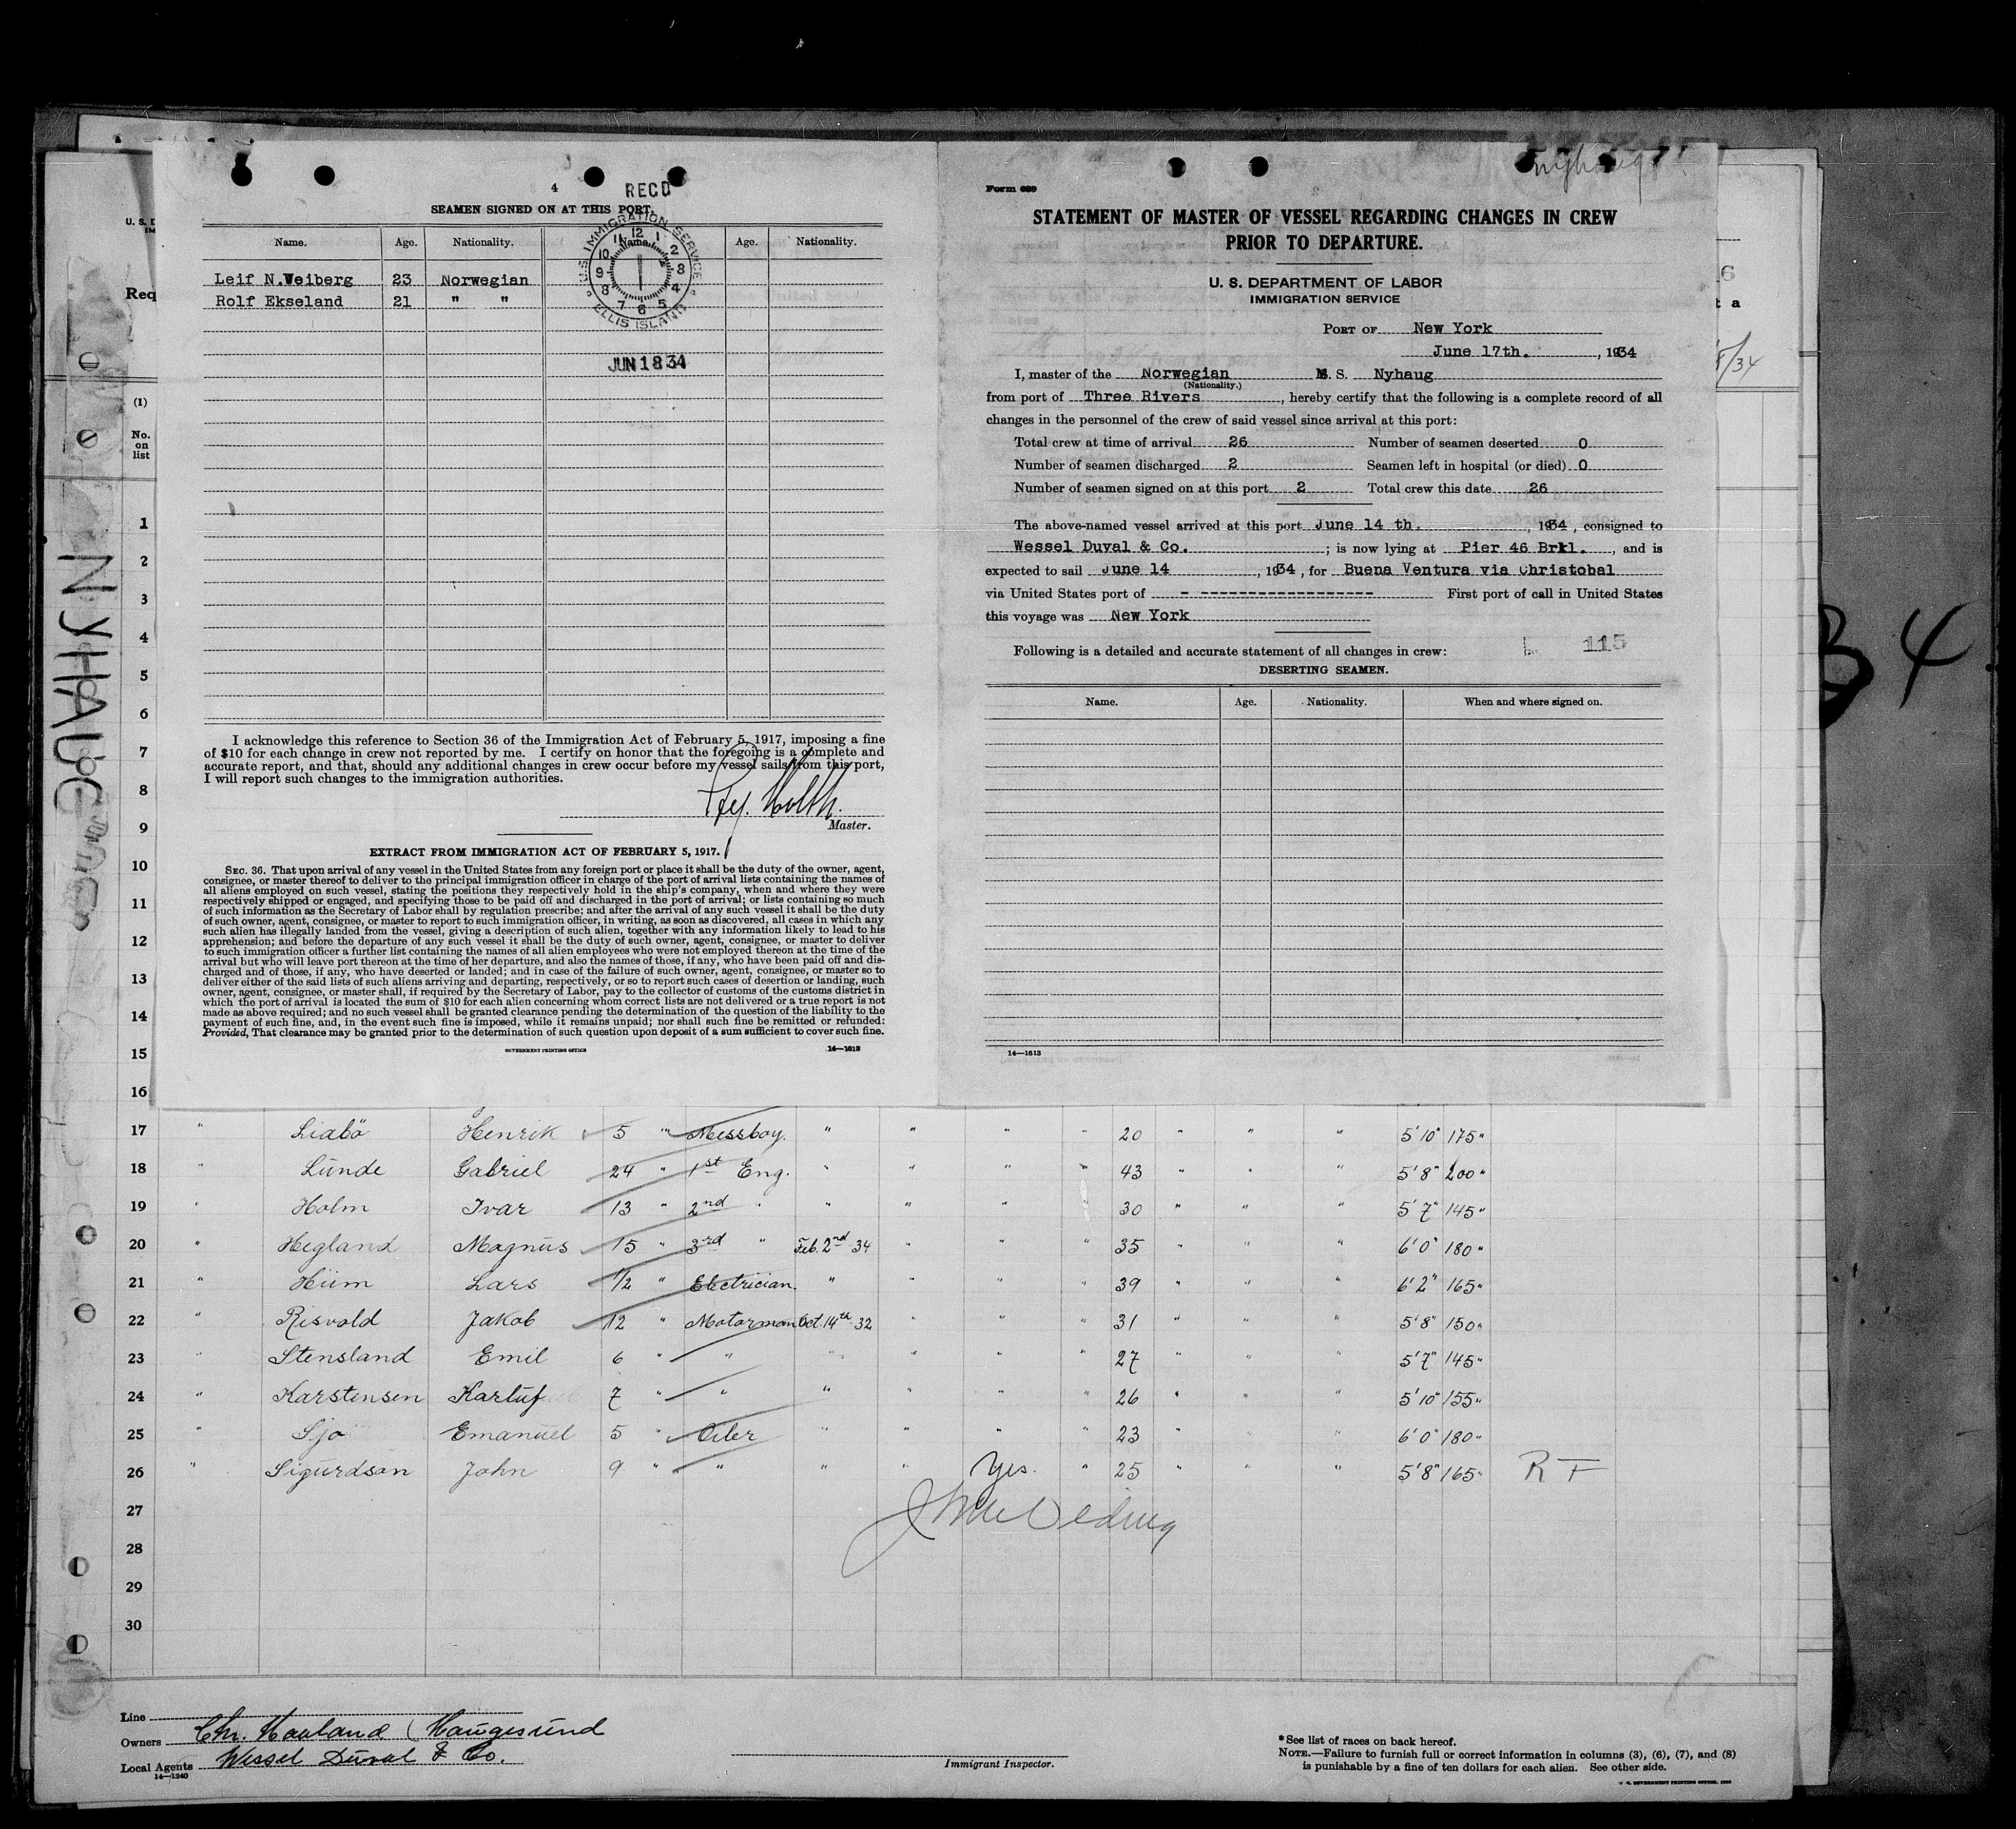 4
REC'D
SEAMEN SIGNED ON AT THIS PORT.
Name. Age. Nationality. Name. Age. Nationality.
U.S. IMMIGRATION SERVICE
ELLIS ISLAND
12 1 2 3 4 5 6 7 8 9 10 11
JUN 18 34
Leif N.Weiberg 23 Norwegian
Rolf Ekseland 21 " "
I acknowledge this reference to Section 36 of the Immigration Act of February 5, 1917, imposing a fine
of $10 for each change in crew not reported by me. I certify on honor that the foregoing is a complete and
accurate report, and that, should any additional changes in crew occur before my vessel sails from this port,
I will report such changes to the immigration authorities.
Holth.
Master.
EXTRACT FROM IMMIGRATION ACT OF FEBRUARY 5, 1917.
SEC. 36. That upon arrival of any vessel in the United States from any foreign port or place it shall be the duty of the owner, agent,
consignee, or master thereof to deliver to the principal immigration officer in charge of the port of arrival lists containing the names of
all aliens employed on such vessel, stating the positions they respectively hold in the ship's company, when and where they were
respectively shipped or engaged, and specifying those to be paid off and discharged in the port of arrival; or lists containing so much
of such information as the Secretary of Labor shall by regulation prescribe; and after the arrival of any such vessel it shall be the duty
of such owner, agent, consignee, or master to report to such immigration officer, in writing, as soon as discovered, all cases in which any
such alien has illegally landed from the vessel, giving a description of such alien, together with any information likely to lead to his
apprehension; and before the departure of any such vessel it shall be the duty of such owner, agent, consignee, or master to deliver
to such immigration officer a further list containing the names of all alien employees who were not employed thereon at the time of the
arrival but who will leave port thereon at the time of her departure, and also the names of those, if any, who have been paid off and dis-
charged and of those, if any, who have deserted or landed; and in case of the failure of such owner, agent, consignee, or master so to
deliver either of the said lists of such aliens arriving and departing, respectively, or so to report such cases of desertion or landing, such
owner, agent, consignee, or master shall, if required by the Secretary of Labor, pay to the collector of customs of the customs district in
which the port of arrival is located the sum of $10 for each alien concerning whom correct lists are not delivered or a true report is not
made as above required; and no such vessel shall be granted clearance pending the determination of the question of the liability to the
payment of such fine, and, in the event such fine is imposed, while it remains unpaid; nor shall such fine be remitted or refunded:
Provided, That clearance may be granted prior to the determination of such question upon deposit of a sum sufficient to cover such fine.
GOVERNMENT PRINTING OFFICE 14—1613
Nyhaug
Form 689
STATEMENT OF MASTER OF VESSEL REGARDING CHANGES IN CREW
PRIOR TO DEPARTURE.
U. S. DEPARTMENT OF LABOR
IMMIGRATION SERVICE
PORT OF New York
June 17th. , 1934
I, master of the Norwegian M. S. Nyhaug
(Nationality.)
from port of Three Rivers , hereby certify that the following is a complete record of all
changes in the personnel of the crew of said vessel since arrival at this port:
Total crew at time of arrival 26 Number of seamen deserted 0
Number of seamen discharged 2 Seamen left in hospital (or died) 0
Number of seamen signed on at this port 2 Total crew this date 26
The above-named vessel arrived at this port June 14 th. , 1934 , consigned to
Wessel Duval & Co. ; is now lying at Pier 46 Brkl. , and is
expected to sail June 14 , 1934 , for Buena Ventura via Christobal
via United States port of - ------------------- First port of call in United States
this voyage was New York
115
Following is a detailed and accurate statement of all changes in crew:
DESERTING SEAMEN.
Name. Age. Nationality. When and where signed on.
14—1613
U. S. D
IM
Req
(1)
No.
on
list
NYHAUG
t a
34
1
2
3
4
5
6
7
8
9
10
11
12
13
14
15
16
17 " Liabö Henrik 5 " Messboy. " " " " 20 " " " 5'10" 175"
18 " Lunde Gabriel 24 " 1st Eng. " " " " 43 " " " 5'8" 200"
19 " Holm Ivar 13 " 2nd " " " " 30 " " " 5'7" 145"
20 " Hegland Magnus 15 " 3rd " Feb. 2nd 34 " " " 35 " " " 6'0" 180"
21 " Hiim Lars 1/2 " Electrician. " " " " 39 " " " 6'2" 165"
22 " Risvold Jakob 12 " Motorman Oct 14th 32 " " " 31 " " " 5'8" 150"
23 " Stensland Emil 6 " " " " " " 27 " " " 5'7" 145"
24 " Karstensen Karluf 7 " " " " " " 26 " " " 5'10" 155"
25 " Sjo Emanuel 5 " Oiler " " " " 23 " " " 6'0" 180"
26 " Sigurdson John 9 " " " " Yes. " 25 " " " 5'8" 165" R F
27
28
29
30
Line
Owners Chr. Haaland (Haugesund
Local Agents Wessel Duval & Co.
14—1240
Immigrant Inspector.
*See list of races on back hereof.
NOTE.—Failure to furnish full or correct information in columns (3), (6), (7), and (8)
is punishable by a fine of ten dollars for each alien. See other side.
U. S. GOVERNMENT PRINTING OFFICE